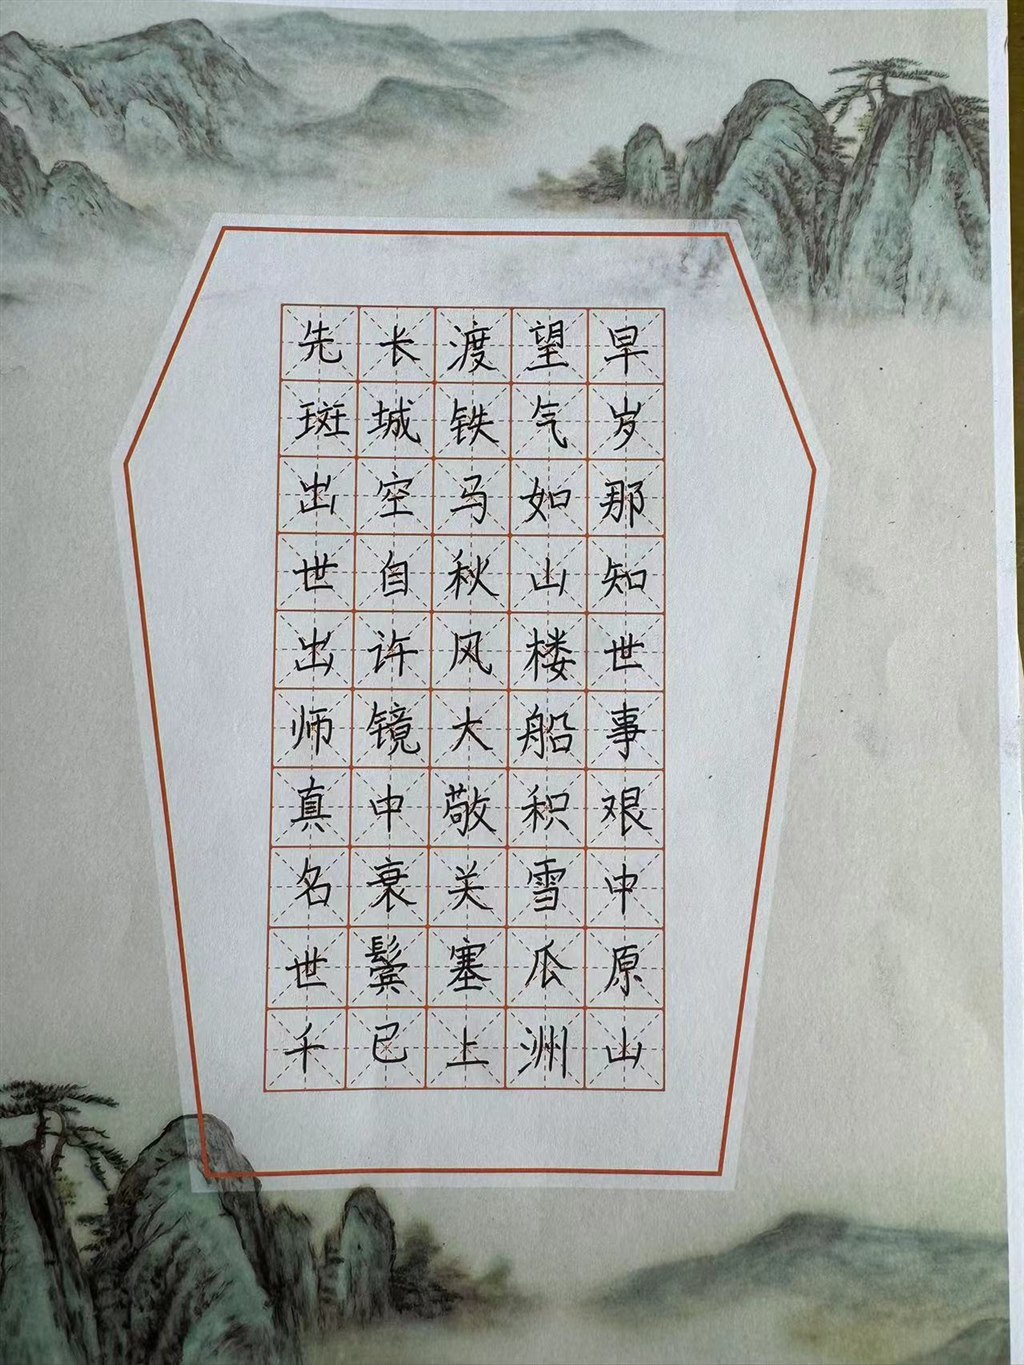 早岁那知世事艰中原山
望气如山楼船积雪瓜洲
渡铁马秋风大敬关塞上
长城空自许镜中衰鬓已
先斑出世出师真名世千